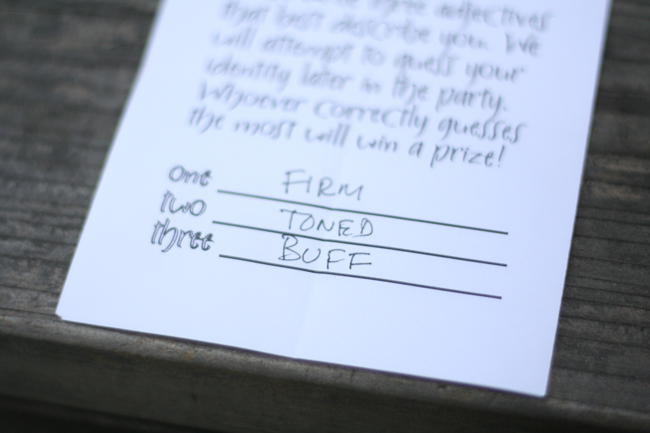 three adjectives
that best describe you. We
will attempt to guess your
identity later in the party.
Whoever correctly guesses
the most will win a prize!
one FIRM
two TONED
three BUFF